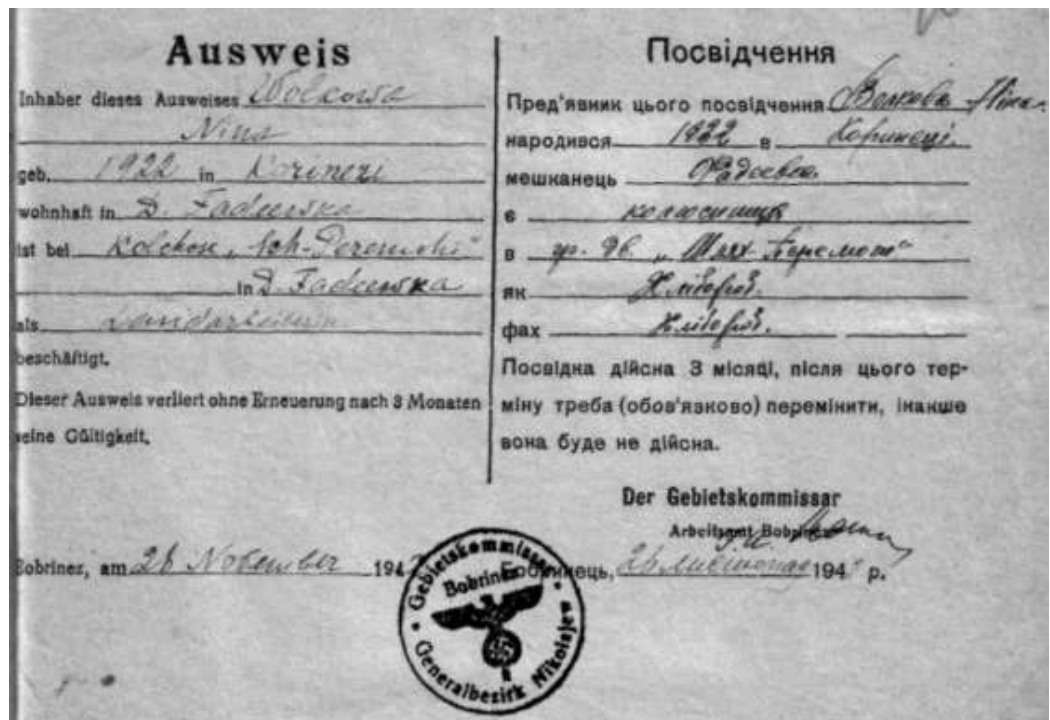 Ausweis
Inhaber dieses Ausweises Wolkowa
Nina
geb. 1922 in
wohnhaft in D. Fadeewka
ist bei Kolchos
in D. Fadeewka
als Landarbeiterin
beschäftigt.
Dieser Ausweis verliert ohne Erneuerung nach 3 Monaten
seine Gültigkeit.
Bobrinez, am 28 November 194
Посвідчення
Пред'явник цього посвідчення Волкова Ніна
народився 1922 в
мешканець
є колгосниця
в гр. дв.
як Хлібороб.
фах Хлібороб.
Посвідка дійсна 3 місяці, після цього тер-
міну треба (обов'язково) перемінити, інакше
вона буде не дійсна.
Der Gebietskommissar
Arbeitsamt Bobrinez
Бобринець, 28 листопад 194 р.
Gebietskommissar
Bobrinez
Generalbezirk Nikolajew